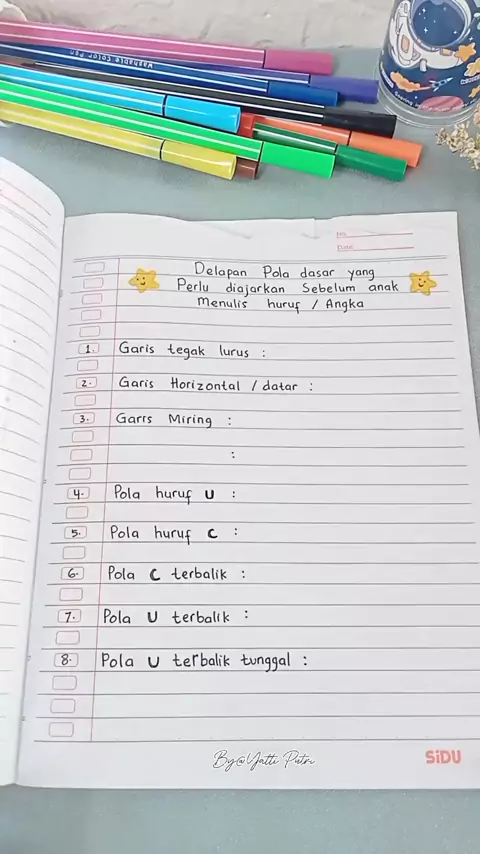 Washable Color Pen
No.
Date:
Delapan Pola dasar yang
Perlu diajarkan Sebelum anak
Menulis huruf / Angka
1. Garis tegak lurus :
2. Garis Horizontal / datar :
3. Garis Miring :
:
4. Pola huruf U :
5. Pola huruf C :
6. Pola C terbalik :
7. Pola U terbalik :
8. Pola U terbalik tunggal :
By@Yatti Putri
SiDU